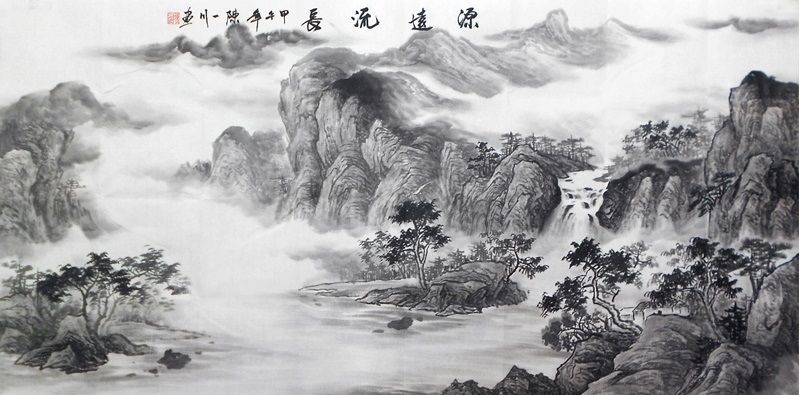 源遠流長 甲午年 陳一川畫